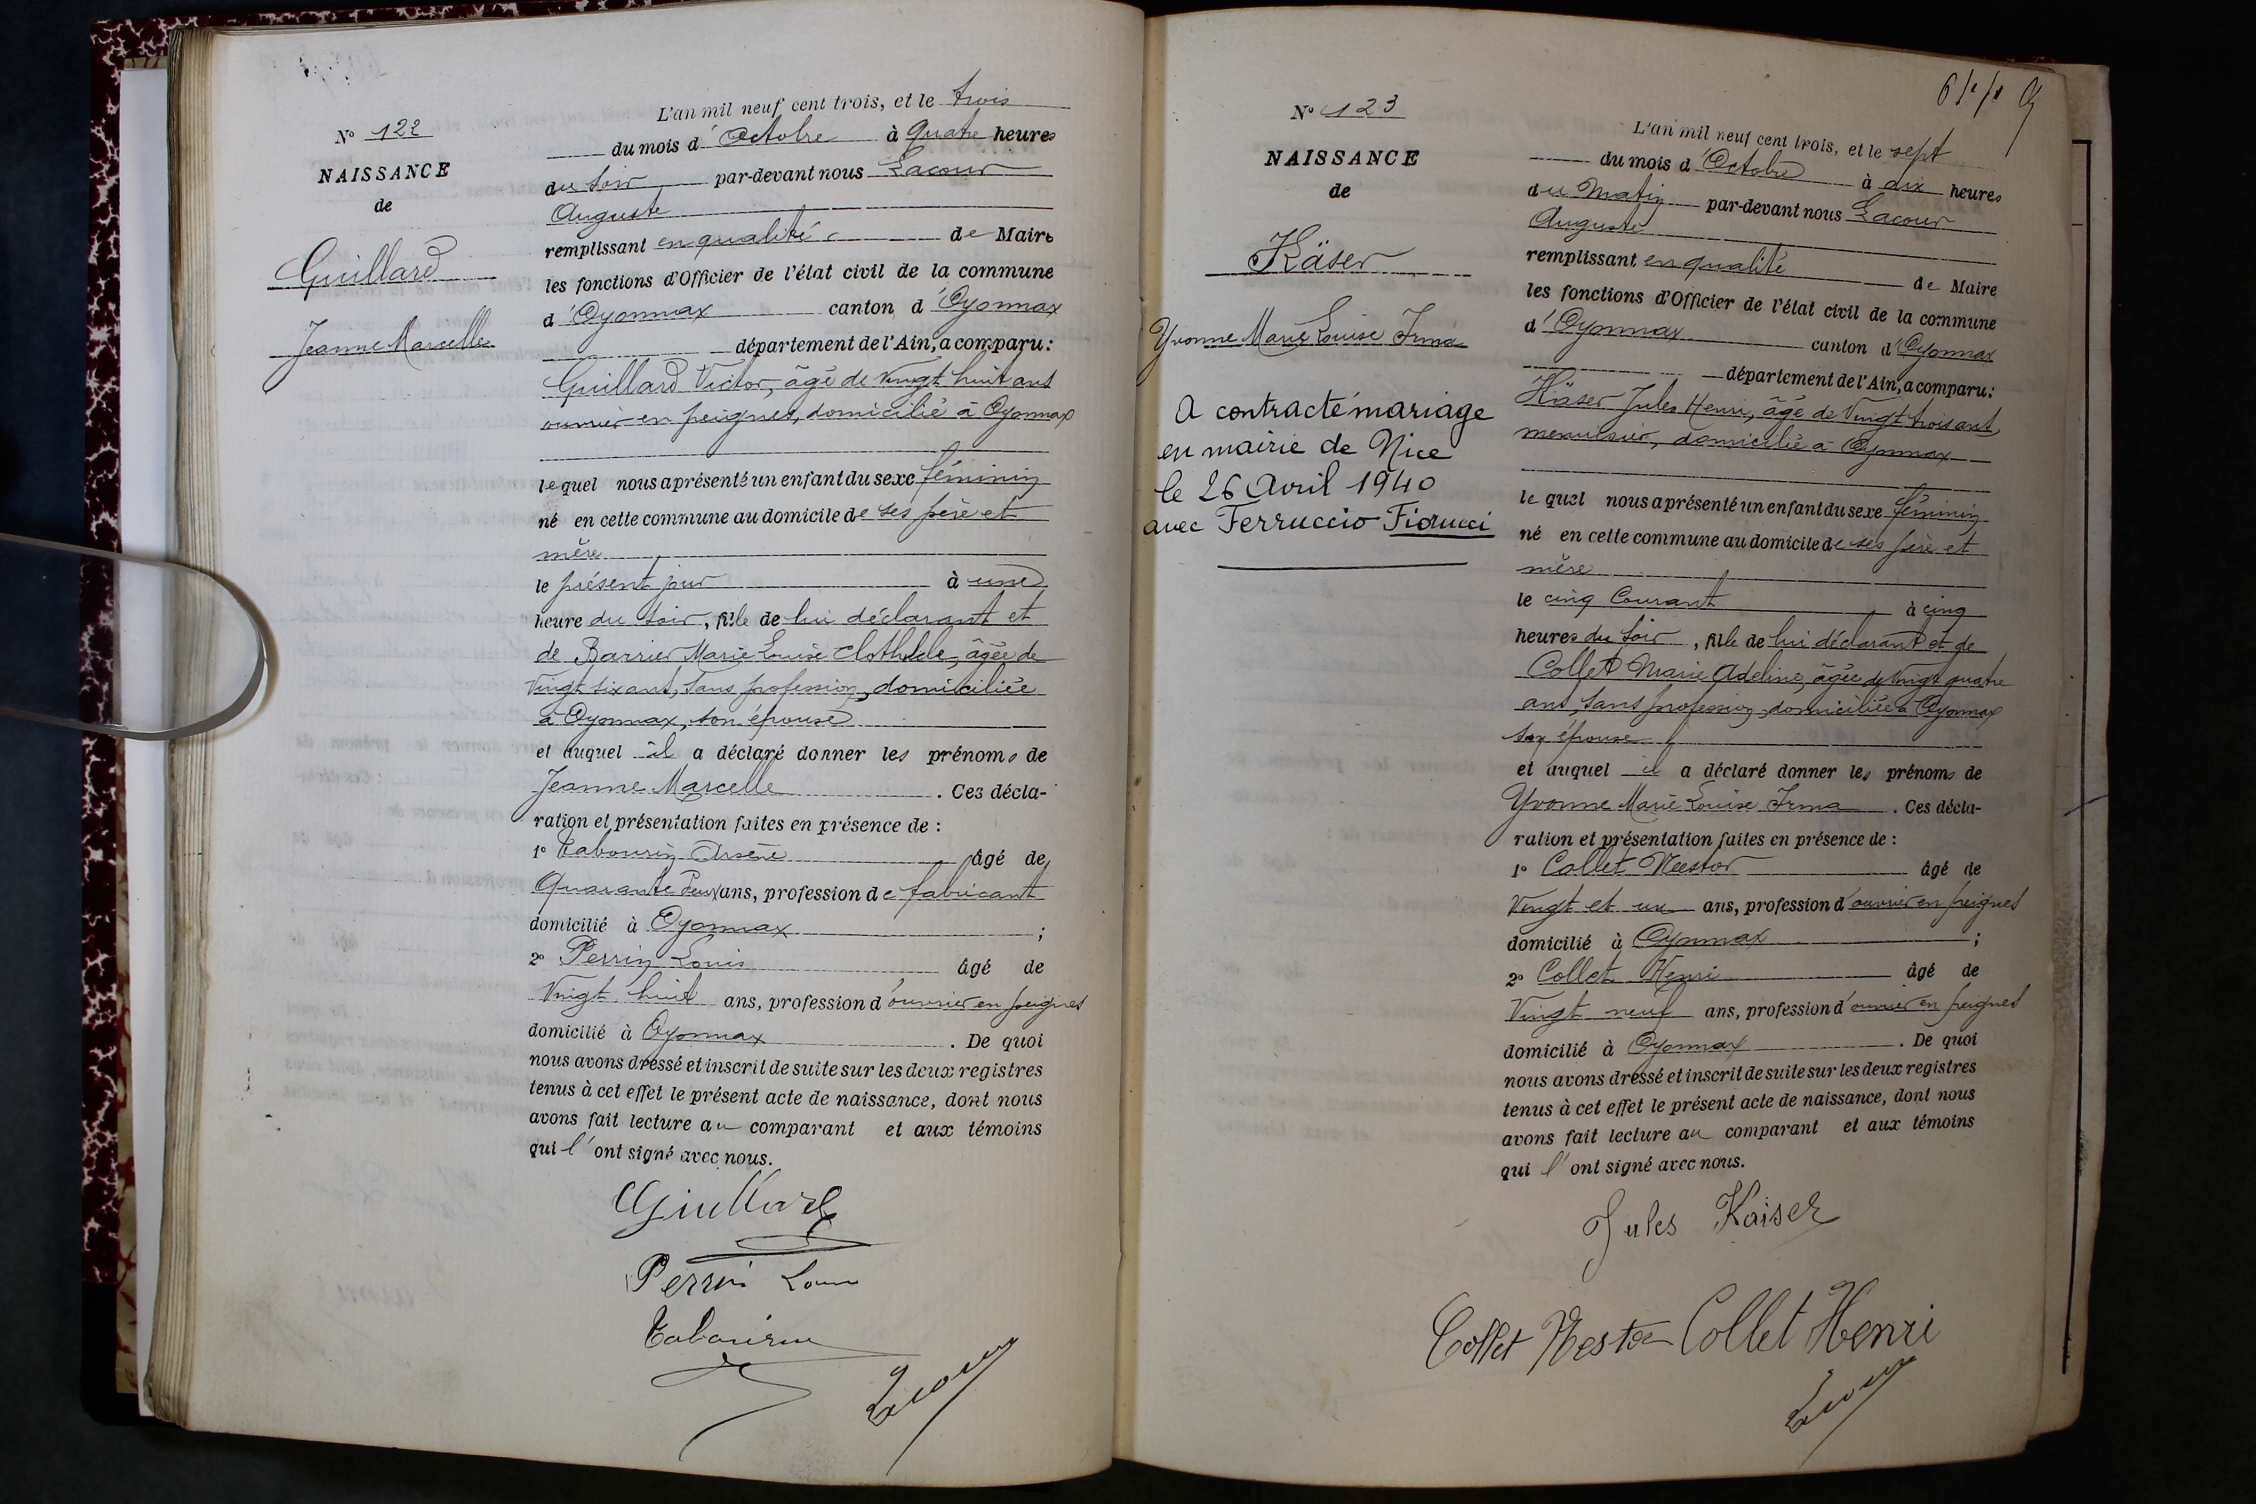 N° 122
NAISSANCE
de
Guillard
Jeanne Marcelle
L'an mil neuf cent trois, et le trois
du mois d'Octobre à quatre heures
du soir par-devant nous Lacour
Auguste
remplissant en qualité de Maire
les fonctions d'Officier de l'état civil de la commune
d'Oyonnax canton d'Oyonnax
département de l'Ain, a comparu:
Guillard Victor, âgé de vingt huit ans
ouvrier en peignes, domicilié à Oyonnax
lequel nous a présenté un enfant du sexe féminin
né en cette commune au domicile de ses père et
mère
le présent jour à une
heure du soir, fille de lui déclarant et
de Barrier Marie Louise Clothilde, âgée de
vingt six ans, sans profession, domiciliée
à Oyonnax, son épouse
et auquel il a déclaré donner les prénoms de
Jeanne Marcelle. Ces décla-
ration et présentation faites en présence de :
1° Tabourin Arsène âgé de
Quarante deux ans, profession de fabricant
domicilié à Oyonnax ;
2° Perrin Louis âgé de
Vingt huit ans, profession d'ouvrier en peignes
domicilié à Oyonnax. De quoi
nous avons dressé et inscrit de suite sur les deux registres
tenus à cet effet le présent acte de naissance, dont nous
avons fait lecture au comparant et aux témoins
qui l'ont signé avec nous.
Guillard
Perrin Louis
Tabourin
Lacour
N° 123
NAISSANCE
de
Käser
Yvonne Marie Louise Irma
A contracté mariage
en mairie de Nice
le 26 Avril 1940
avec Ferruccio Fiorucci
L'an mil neuf cent trois, et le sept
du mois d'Octobre à dix heures
du Matin par-devant nous Lacour
Auguste
remplissant en qualité de Maire
les fonctions d'Officier de l'état civil de la commune
d'Oyonnax canton d'Oyonnax
département de l'Ain, a comparu:
Käser Jules Henri, âgé de Vingt trois ans,
menuisier, domicilié à Oyonnax
le quel nous a présenté un enfant du sexe féminin
né en cette commune au domicile de ses père et
mère
le cinq Courant à cinq
heures du soir, fille de lui déclarant et de
Collet Marie Adeline, âgée de vingt quatre
ans, sans profession, domiciliée à Oyonnax
son épouse
et auquel il a déclaré donner les prénoms de
Yvonne Marie Louise Irma. Ces décla-
ration et présentation faites en présence de :
1° Collet Neestor âgé de
Vingt et un ans, profession d'ouvrier en peignes
domicilié à Oyonnax ;
2° Collet Henri âgé de
Vingt neuf ans, profession d'ouvrier en peignes
domicilié à Oyonnax. De quoi
nous avons dressé et inscrit de suite sur les deux registres
tenus à cet effet le présent acte de naissance, dont nous
avons fait lecture au comparant et aux témoins
qui l'ont signé avec nous.
Jules Kaiser
Collet Nestor Collet Henri
Lacour